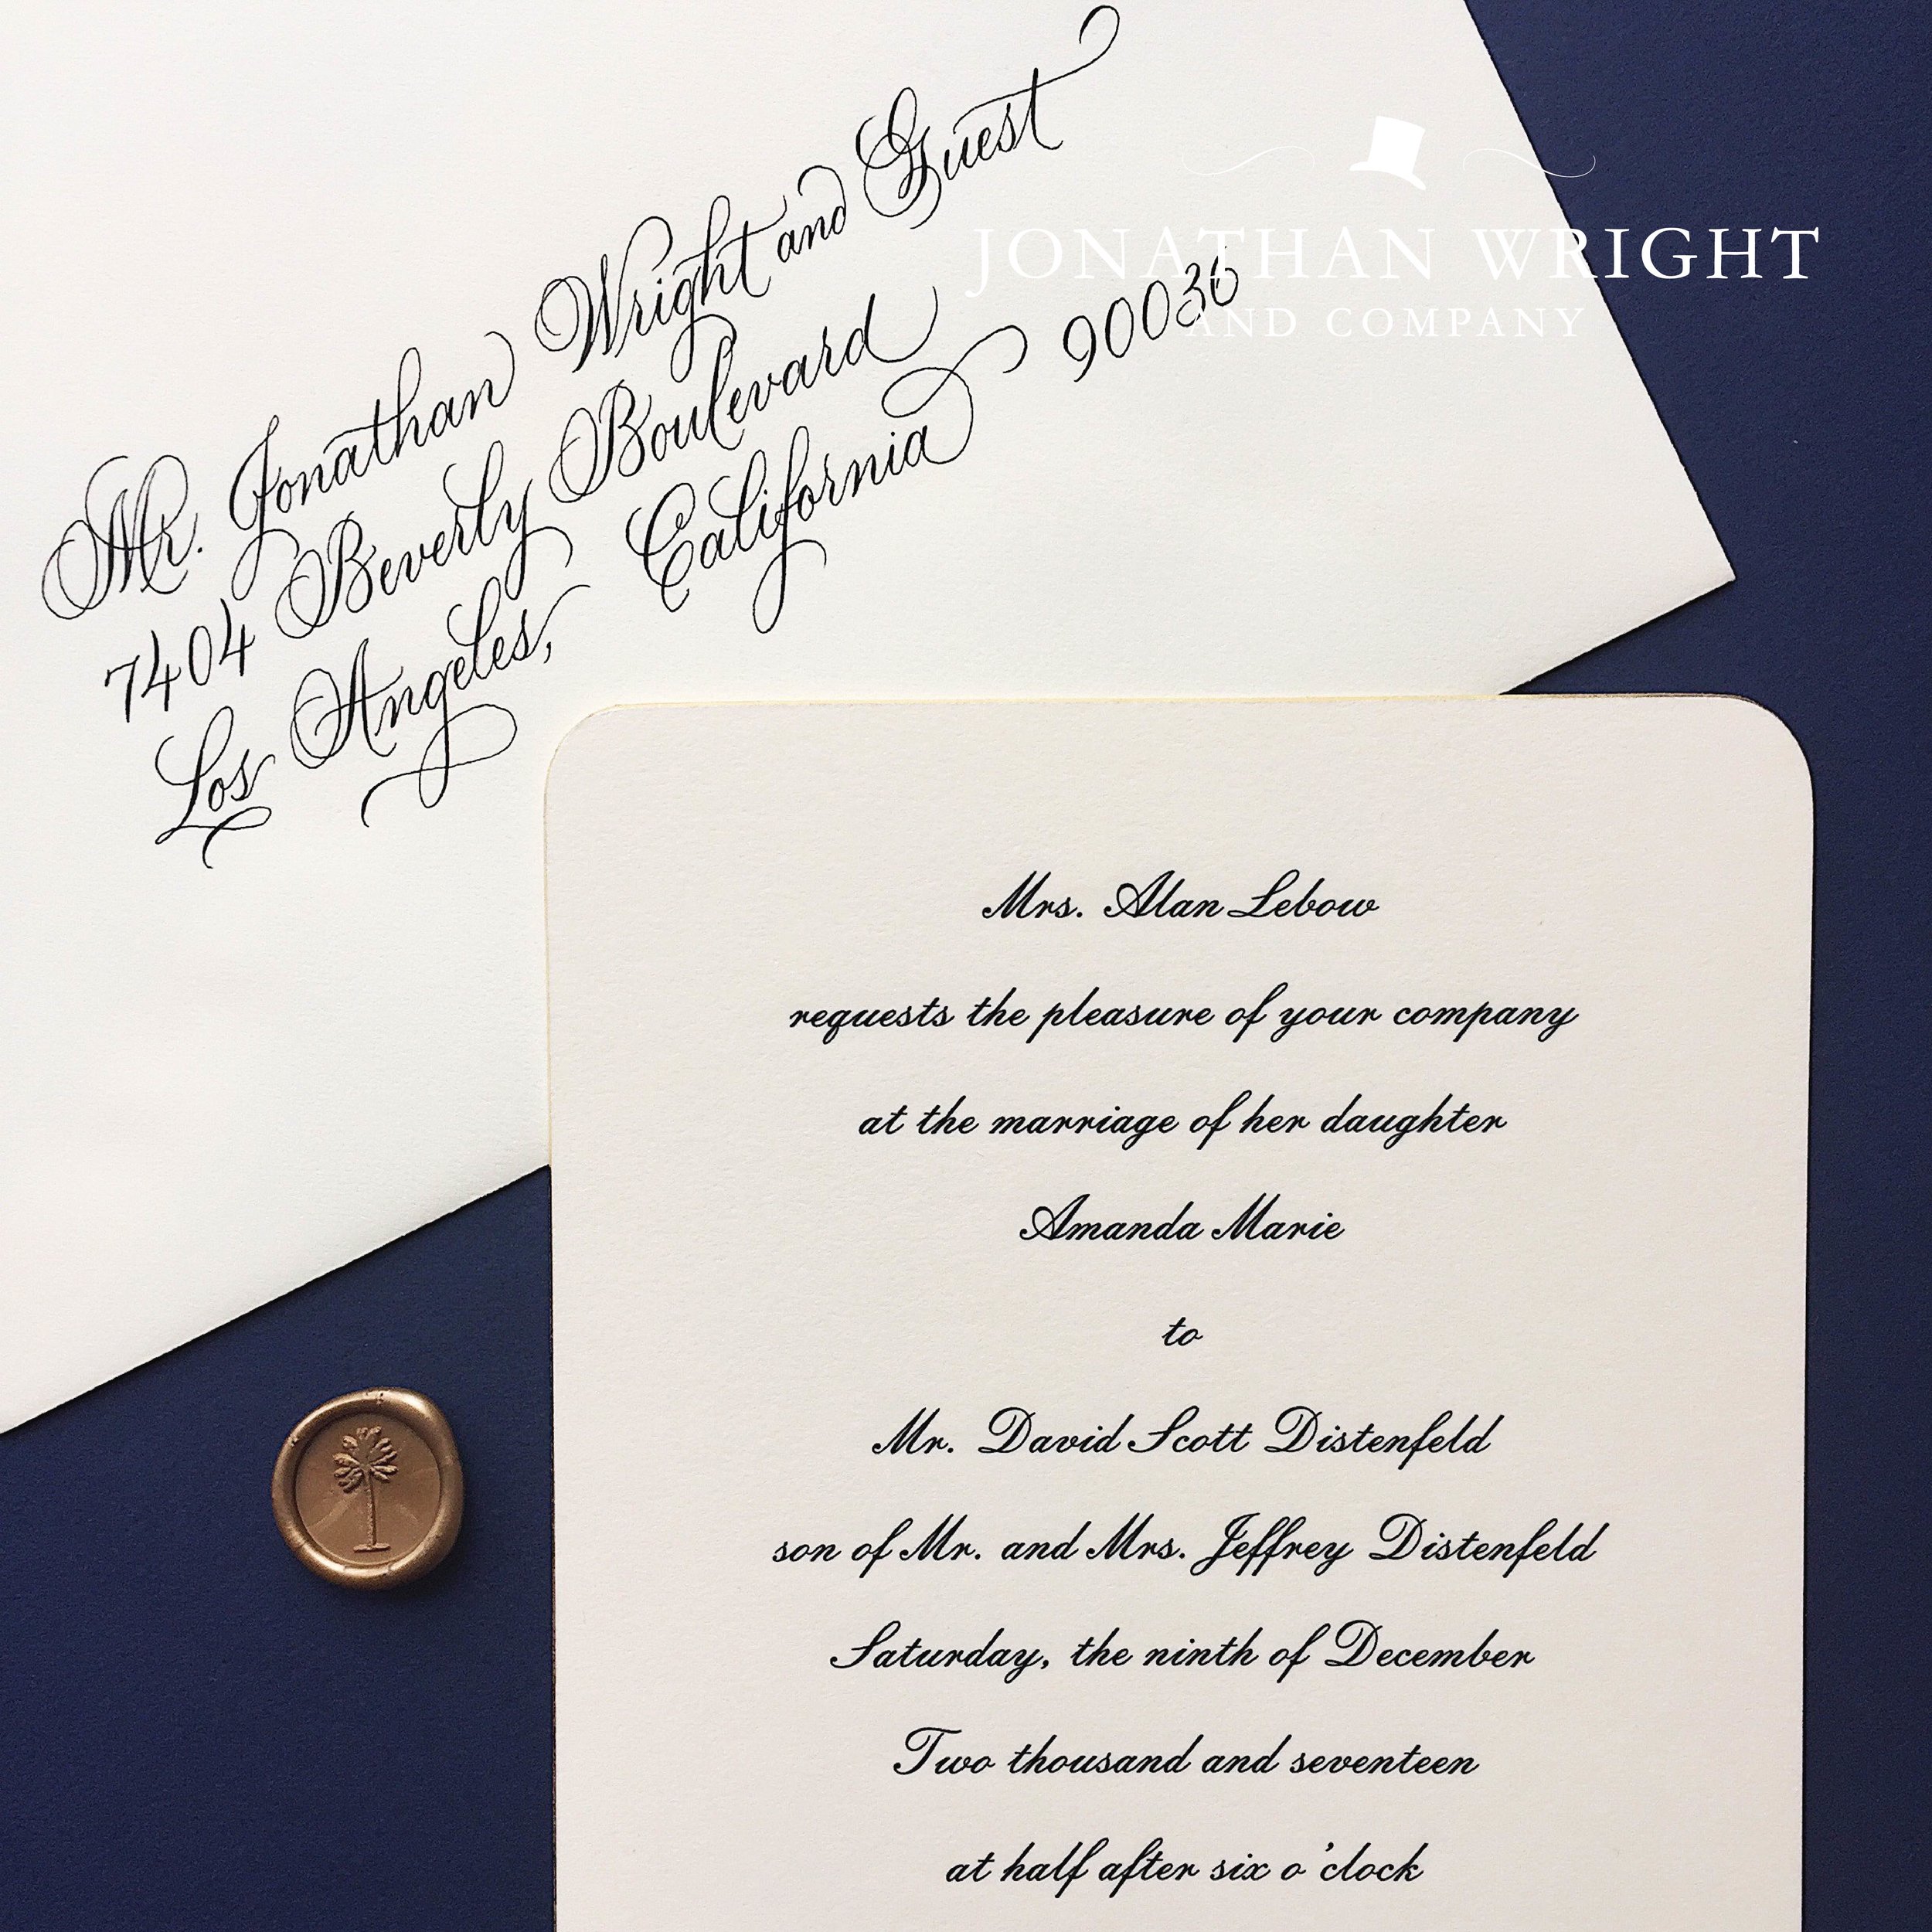 Mr. Jonathan Wright and Guest
7404 Beverly Boulevard
Los Angeles, California 90036
JONATHAN WRIGHT
AND COMPANY
Mrs. Alan Lebow
requests the pleasure of your company
at the marriage of her daughter
Amanda Marie
to
Mr. David Scott Distenfeld
son of Mr. and Mrs. Jeffrey Distenfeld
Saturday, the ninth of December
Two thousand and seventeen
at half after six o'clock